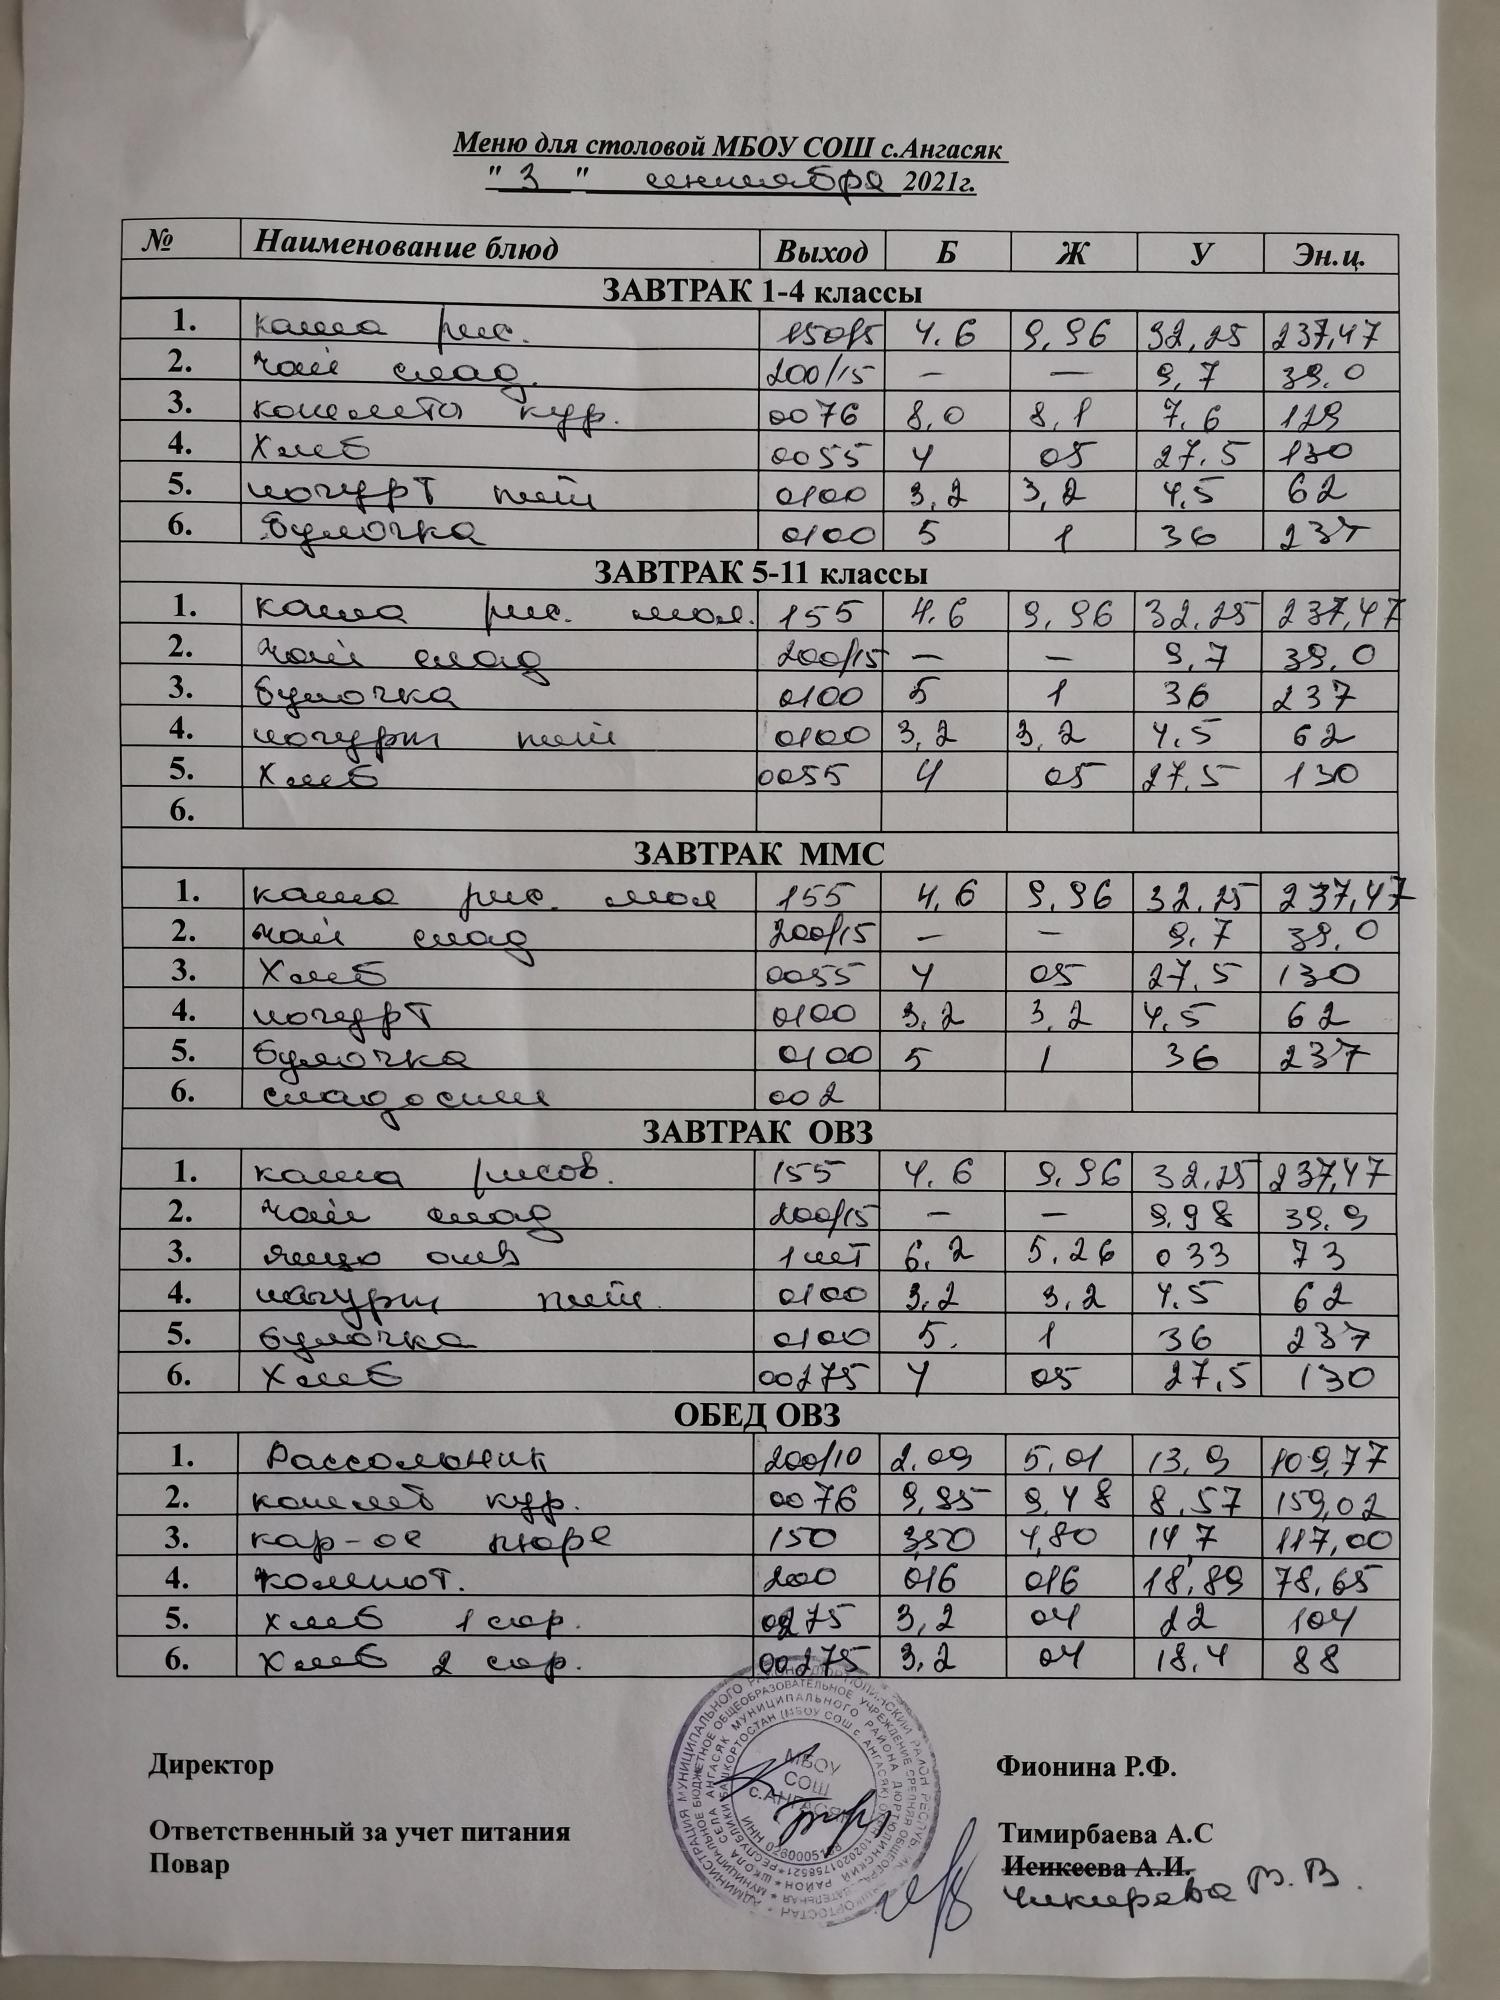 Меню для столовой МБОУ СОШ с.Ангасяк
" 3 " сентября 2021г.
№ Наименование блюд Выход Б Ж У Эн.ц.
ЗАВТРАК 1-4 классы
1. каша рис. 150/5 4.6 9,96 32,25 237,47
2. чай слад. 200/15 — — 9,7 39,0
3. котлета кур. 0076 8,0 8,1 7,6 129
4. Хлеб 0055 4 05 27.5 130
5. йогурт пит 0100 3,2 3,2 4,5 62
6. булочка 0100 5 1 36 237
ЗАВТРАК 5-11 классы
1. каша рис. мол. 155 4.6 9,96 32,25 237,47
2. чай слад 200/15 — — 9,7 39,0
3. булочка 0100 5 1 36 237
4. йогурт пит 0100 3,2 3,2 4.5 62
5. Хлеб 0055 4 05 27.5 130
6.
ЗАВТРАК ММС
1. каша рис. мол 155 4,6 9,96 32,25 237,47
2. чай слад 200/15 — — 9,7 39,0
3. Хлеб 0055 4 05 27,5 130
4. йогурт 0100 3,2 3,2 4,5 62
5. булочка 0100 5 1 36 237
6. сладости 002
ЗАВТРАК ОВЗ
1. каша рисов. 155 4.6 9,96 32,25 237,47
2. чай слад 200/15 — — 9,98 39,9
3. яйцо отв 1шт 6,2 5,26 033 73
4. йогурт пит. 0100 3,2 3,2 4,5 62
5. булочка 0100 5. 1 36 237
6. Хлеб 00275 4 05 27,5 130
ОБЕД ОВЗ
1. Рассольник 200/10 2.09 5,01 13,9 109,77
2. котлет кур. 0076 9,95 9,48 8,57 159,02
3. кар-ое пюре 150 3,50 4,80 14,7 117,00
4. компот. 200 016 016 18,89 78,65
5. хлеб 1 сор. 00275 3,2 04 22 104
6. Хлеб 2 сор. 00275 3,2 04 18,4 88
МБОУ
СОШ
с.АНГАСЯК
Директор Фионина Р.Ф.
Ответственный за учет питания Тимирбаева А.С
Повар Исикеева А.И.
Чикирева В. В.